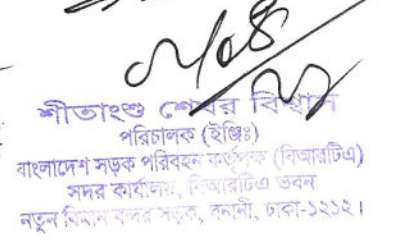 শীতাংশু শেখর বিশ্বাস
পরিচালক (ইঞ্জিঃ)
বাংলাদেশ সড়ক পরিবহন কর্তৃপক্ষ (বিআরটিএ)
সদর কার্যালয়, বিআরটিএ ভবন
নতুন বিমান বন্দর সড়ক, বনানী, ঢাকা-১২১২।